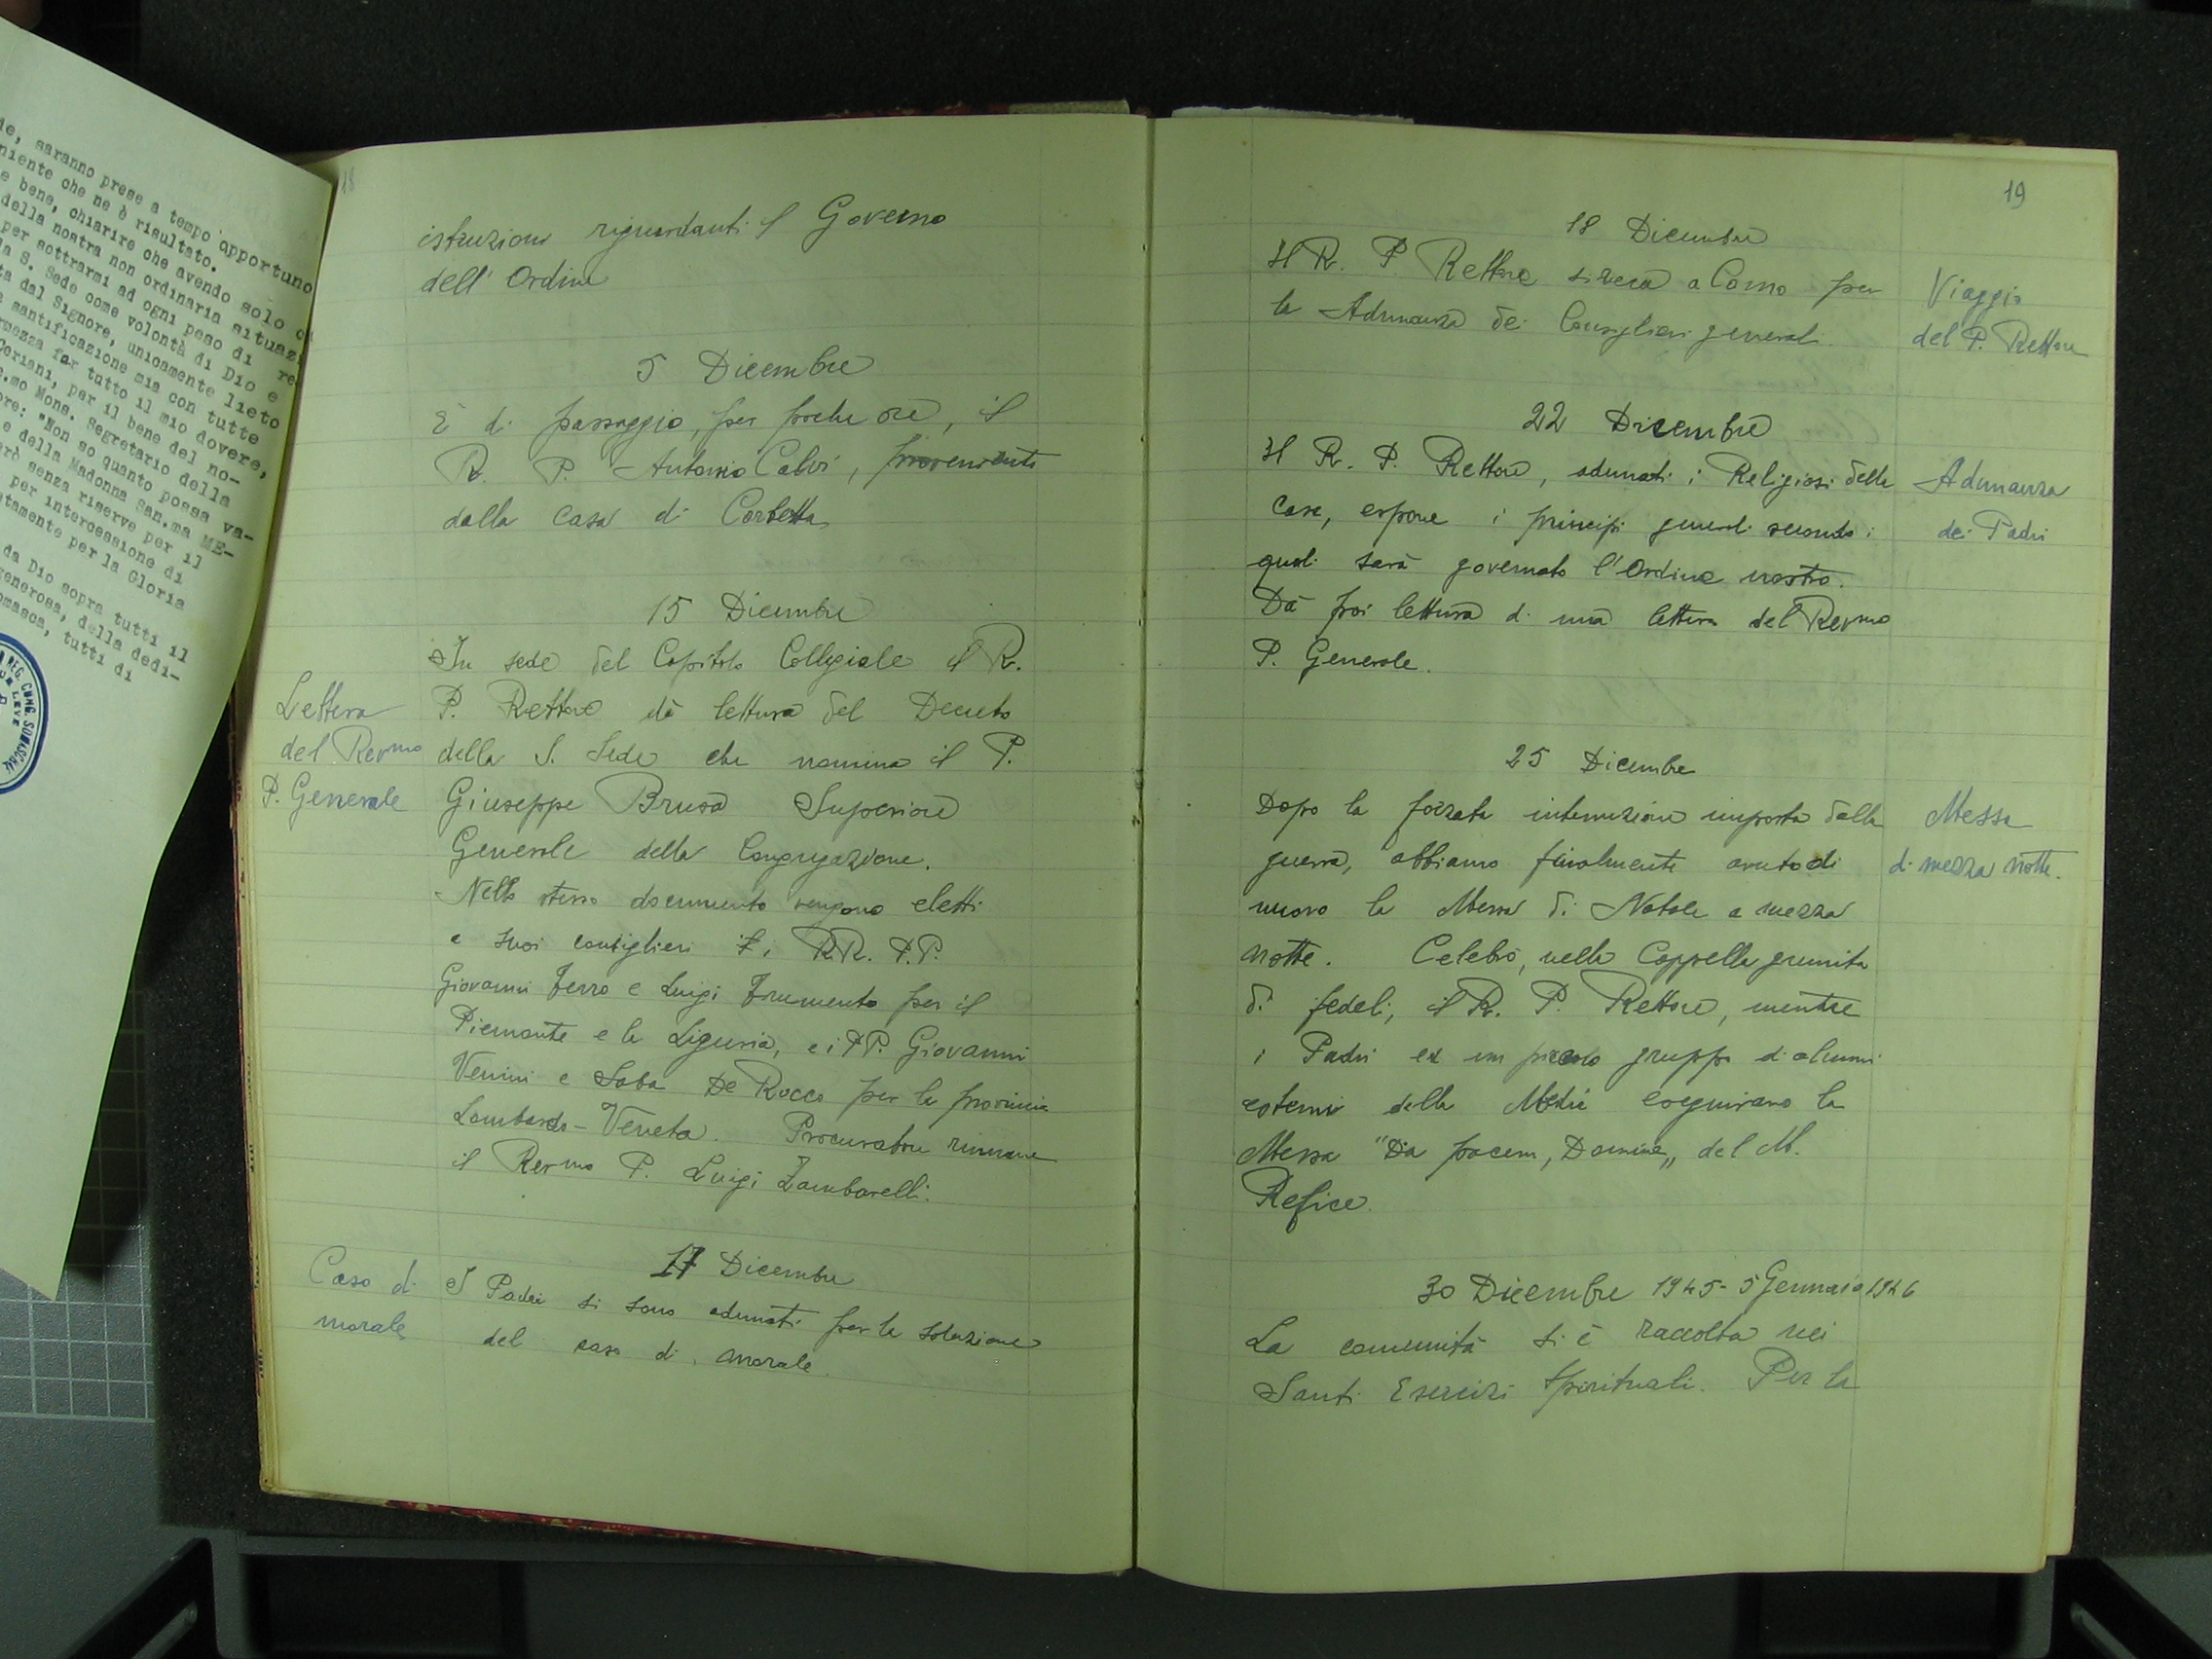 ne, saranno prese a tempo opportuno
niente che ne è risultato.
e bene, chiarire che avendo solo
della nostra non ordinaria situaz
per sottrarmi ad ogni peso di re
la S. Sede come volontà di Dio e
ta dal Signore, unicamente lieto
santificazione mia con tutte
rmezza far tutto il mio dovere,
Ceriani, per il bene del no-
e.mo Mons. Segretario della
ore: "Non so quanto possa va-
e della Madonna San.ma ME-
rò senza riserve per il
per intercessione di
tamente per la Gloria
da Dio sopra tutti il
generosa, della dedi-
omasca, tutti di
REG. CONG. SOMASCHAE
18
istruzioni riguardanti il Governo
dell' Ordine
5 Dicembre
È di passaggio, per poche ore, il
R. P. Antonio Calvi, proveniente
dalla casa di Corbetta
15 Dicembre
In sede del Capitolo Collegiale il R.
P. Rettore dà lettura del Decreto
della S. Sede che nomina il P.
Giuseppe Brusa Superiore
Generale della Congregazione.
Nello stesso documento vengono eletti
a suoi consiglieri i RR. P.P.
Giovanni Ferro e Luigi Frumento per il
Piemonte e la Liguria, e i PP. Giovanni
Venini e Saba De Rocco per la provincia
Lombardo-Veneta. Procuratore rimane
il Rev.mo P. Luigi Zambarelli.
Lettera
del Rev.mo
P. Generale
17 Dicembre
I Padri si sono adunati per la soluzione
del caso di morale.
Caso di
morale
19
18 Dicembre
Il R. P. Rettore si reca a Como per
la Adunanza dei Consiglieri generali.
Viaggio
del P. Rettore
22 Dicembre
Il R. P. Rettore, adunati i Religiosi della
casa, espone i principi generali secondo i
quali sarà governato l'Ordine nostro.
Dà poi lettura di una lettera del Rev.mo
P. Generale.
Adunanza
dei Padri
25 Dicembre
Dopo la forzata interruzione imposta dalla
guerra, abbiamo finalmente avuto di
nuovo la Messa di Natale a mezza
notte. Celebrò, nella Cappella gremita
di fedeli, il R. P. Rettore, mentre
i Padri ed un piccolo gruppo di alunni
esterni della Media eseguirono la
Messa "Da pacem, Domine„ del M.
Refice.
Messa
di mezza notte.
30 Dicembre 1945 - 5 Gennaio 1946
La comunità si è raccolta nei
Santi Esercizi Spirituali. Per la